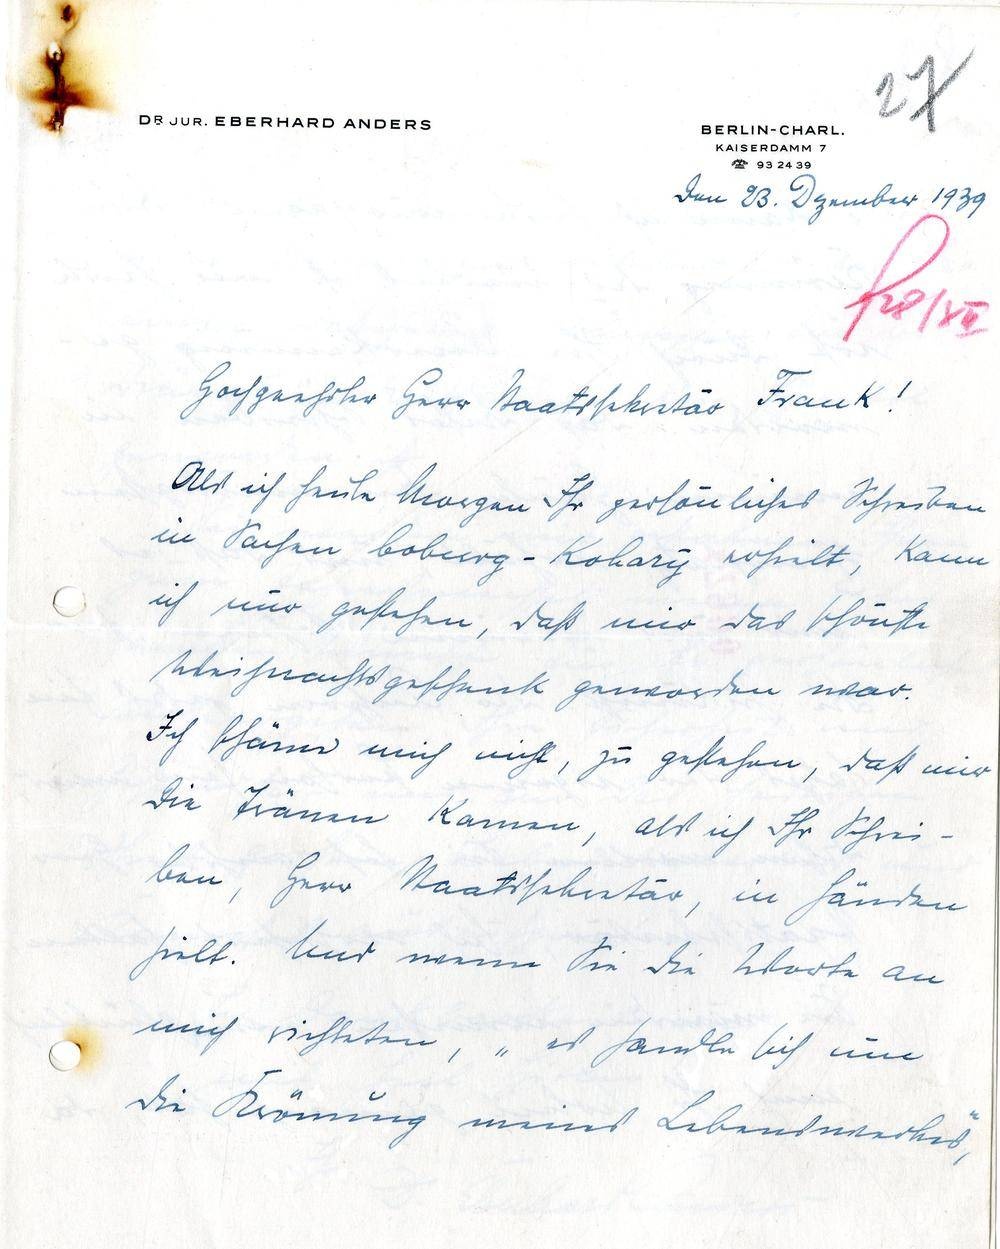 27
DR JUR. EBERHARD ANDERS
BERLIN-CHARL.
KAISERDAMM 7
☎ 93 24 39
den 23. Dezember 1939
28/XII
Hochgeehrter Herr Staatssekretär Frank!
Als ich heute Morgen Ihr persönliches Schreiben
in Sachen Coburg-Kohary erhielt, kann
ich nur gestehen, daß mir das schönste
Weihnachtsgeschenk geworden war.
Ich schäme mich nicht, zu gestehen, daß mir
die Tränen kamen, als ich Ihr Schrei-
ben, Herr Staatssekretär, in Händen
hielt. Und wenn Sie die Worte an
mich richteten, „es handle sich um
die Krönung meines Lebenswerkes",